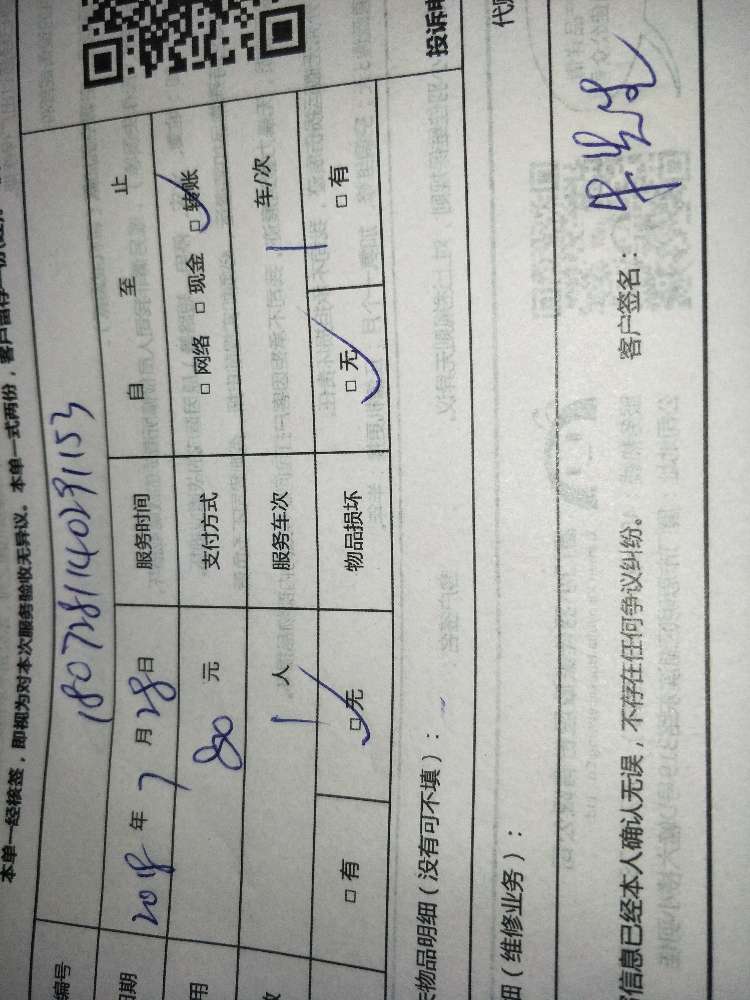 本单一经核签，即视为对本次服务验收无异议。本单一式两份，客户留存一份
编号 1807281140291153
日期 2018 年 7 月 28 日 服务时间 自 至 止
用 80 元 支付方式 □ 网络 □ 现金 □ 转账
数 1 人 服务车次 1 车/次
□ 有 □ 无 物品损坏 □ 无 □ 有
物品明细（没有可不填）： 投诉电
细（维修业务）：
信息已经本人确认无误，不存在任何争议纠纷。 客户签名：